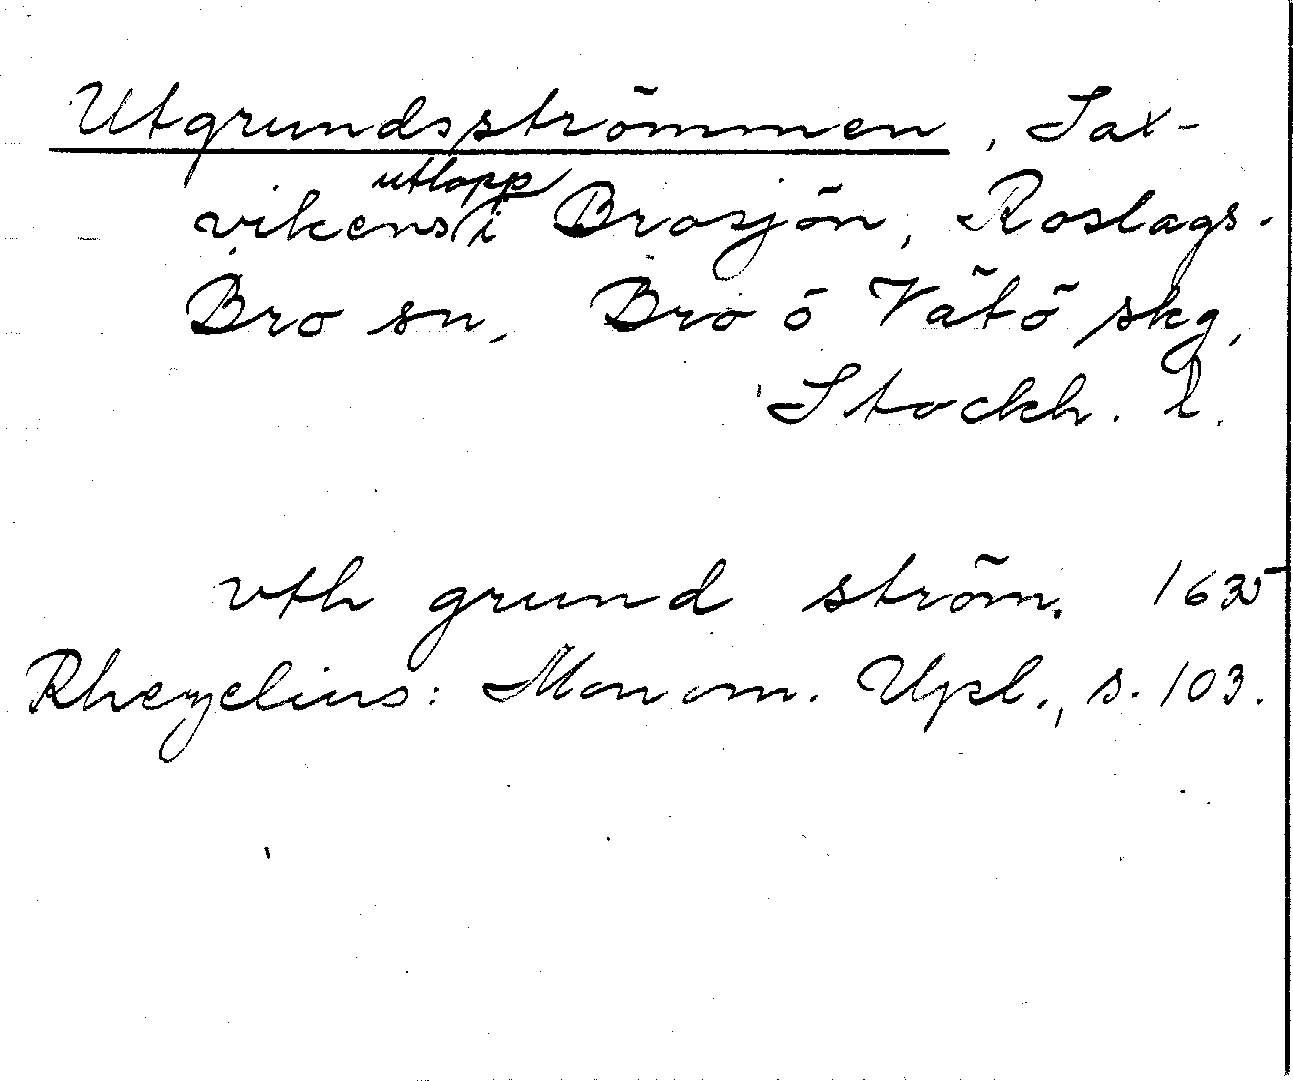 Utgrundsströmmen, Sax-
vikens utlopp i Brosjön, Roslags-
Bro sn, Bro ö Vätö skg,
Stockh. l.
vth grund ström. 1635
Rhezelius: Monom. Upl., s. 103.